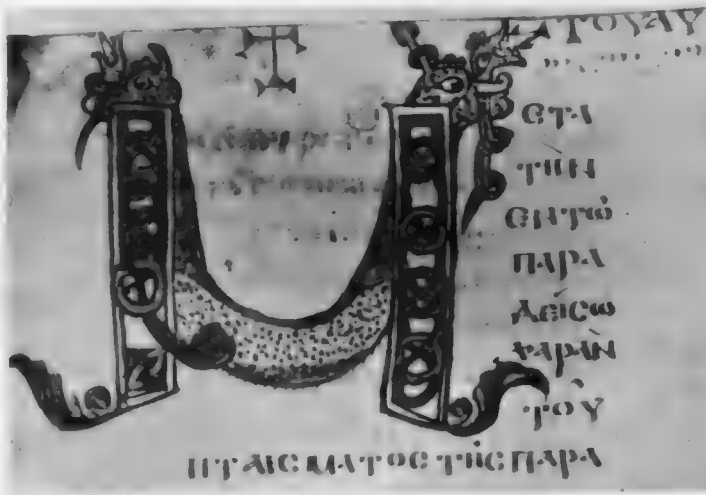 ΤΟΥ ΑΥ
ΜΕΤΑ
ΤῊΝ
ΕΝΤΩ
ΠΑΡΑ
ΔΕΙCΩ
ΧΑΡᾺΝ
ΤΟΥ͂
ΠΤΑΙCΜΑΤΟC ΤΗC ΠΑΡΑ